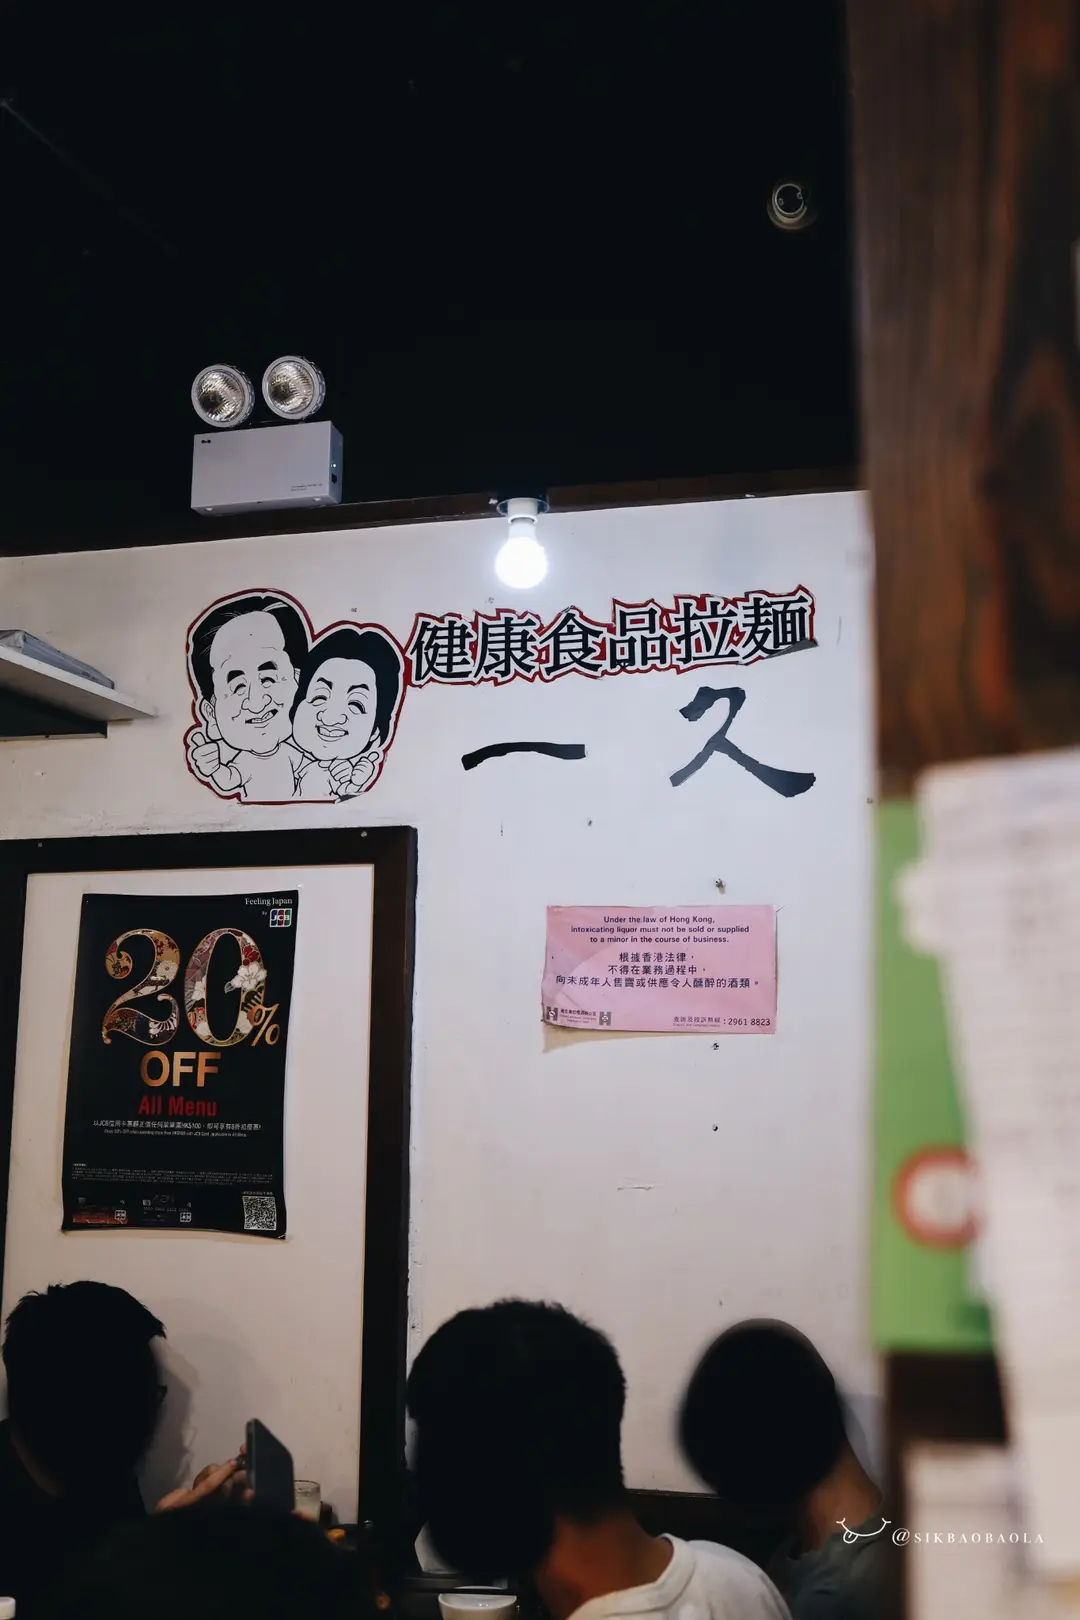 健康食品拉麵
一久
Feeling Japan
by JCB
20%
OFF
All Menu
Under the law of Hong Kong,
intoxicating liquor must not be sold or supplied
to a minor in the course of business.
根據香港法律，
不得在業務過程中，
向未成年人售賣或供應令人醺醉的酒類。
查詢及投訴熱線：2961 8823
@SIKBAOBAOLA